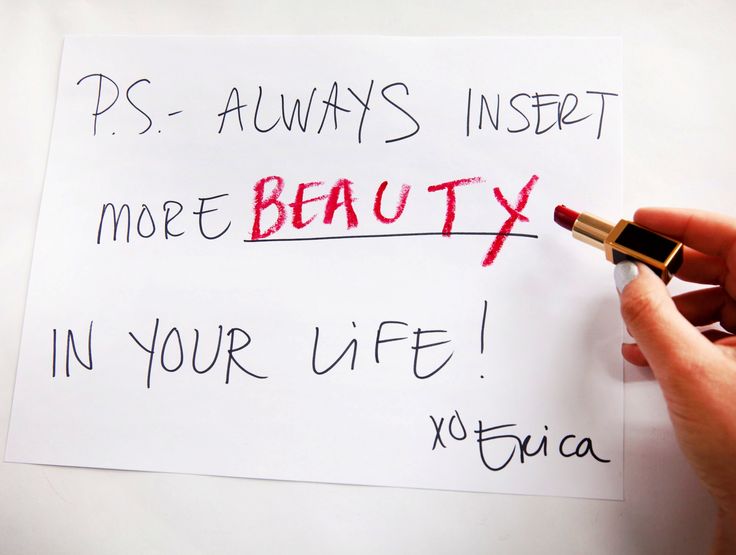 P.S.- ALWAYS INSERT
MORE BEAUTY
IN YOUR LiFE!
XO Erica